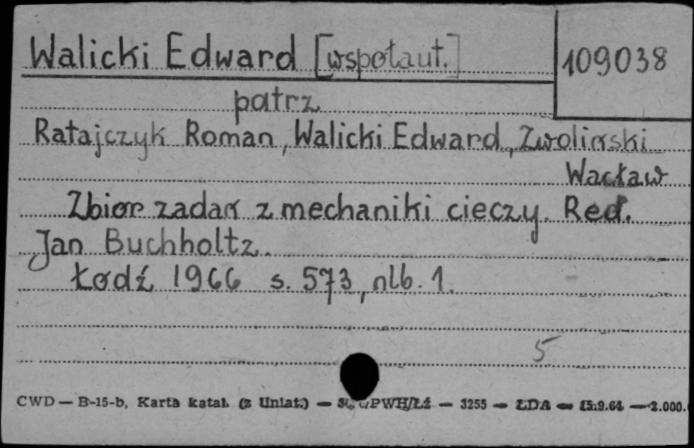 Walicki Edward [współaut.]
109038
patrz
Ratajczyk Roman, Walicki Edward, Zwoliński
Wacław
Zbiór zadań z mechaniki cieczy. Red.
Jan Buchholtz.
Łódź 1966 s. 573, nlb. 1.
5
CWD — B-15-b, Karta katal. (z Uniat.) — PWH/Łż — 3255 — ŁDA — 15.9.64 — 2.000.